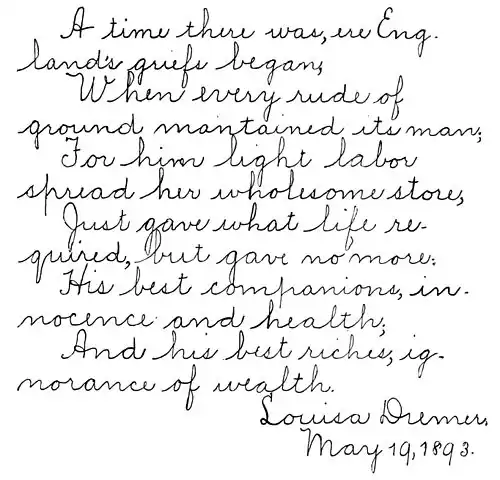 A time there was, ere Eng-
land's griefs began,
When every rude of
ground mantained its man;
For him light labor
spread her wholesome store,
Just gave what life re-
quired, but gave no more:
His best companions, in-
nocence and health;
And his best riches, ig-
norance of wealth.
Louisa Dremer,
May 19, 1893.